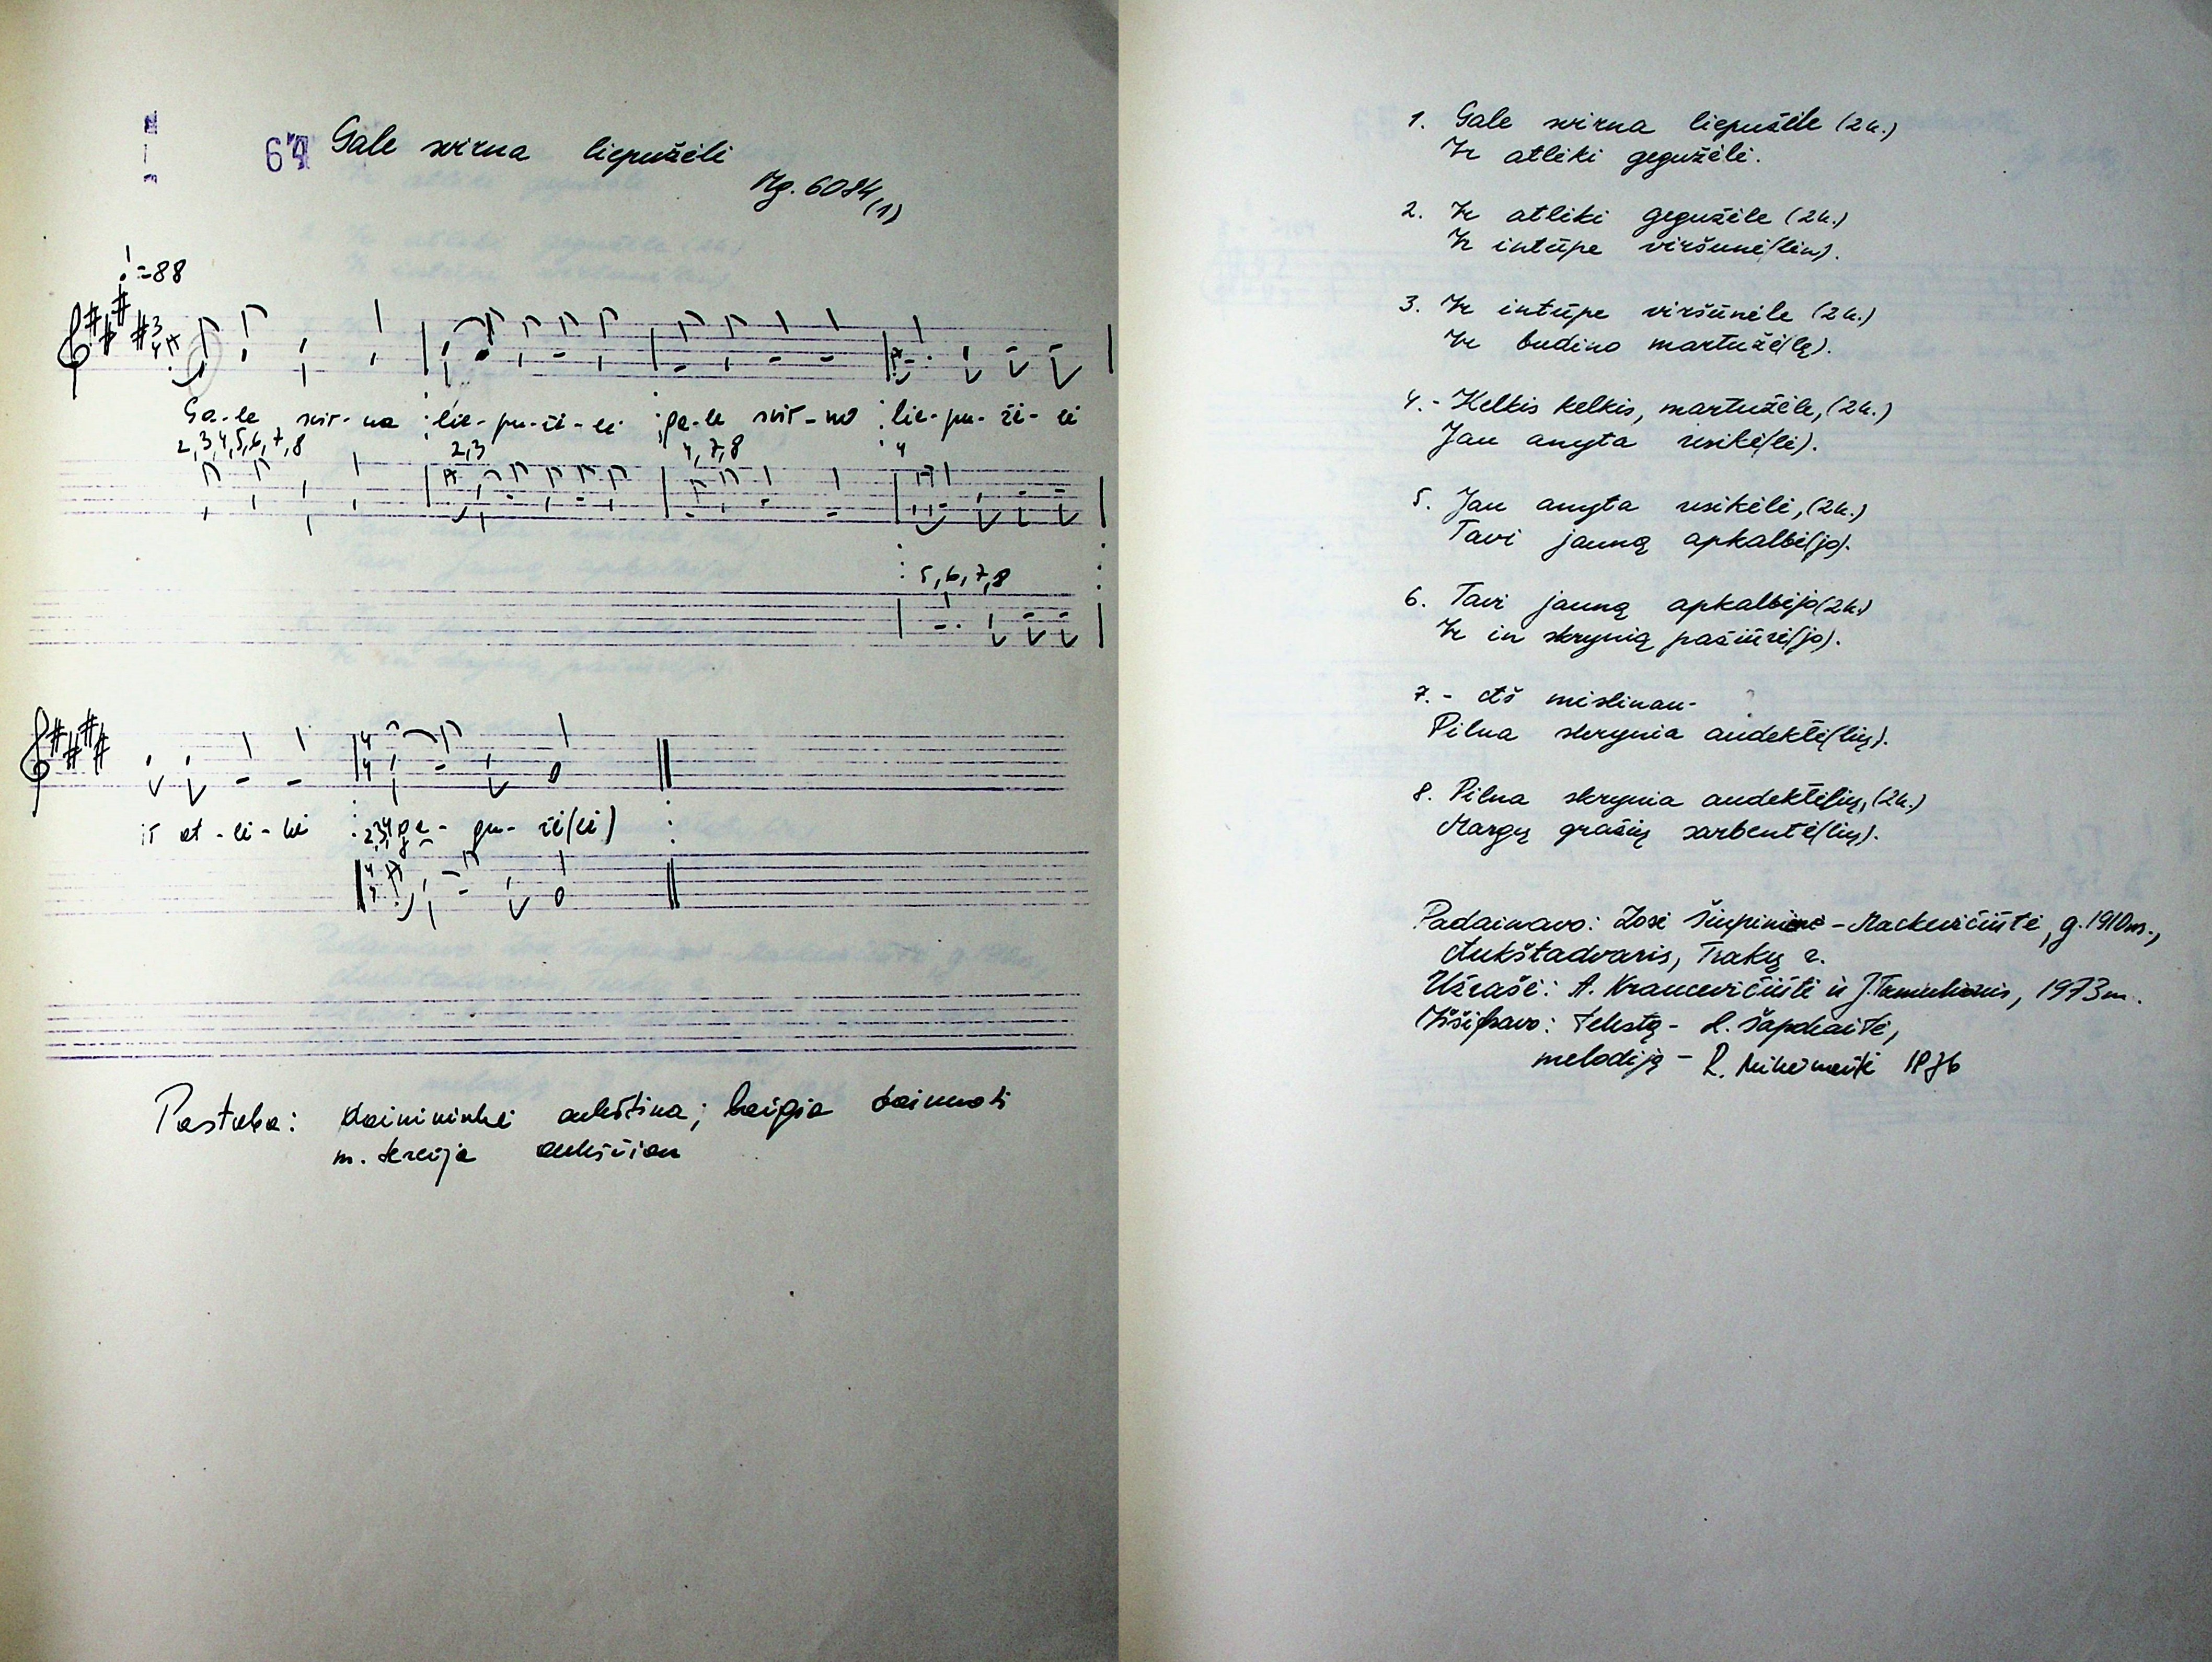 64 Gale svirna liepužėli
Mg. 6084(1)
=88
Ga-le svir-na lie-pu-žė-lei ga-le svir-no lie-pu-žė-lei
2,3,4,5,6,7,8 2,3 4,7,8 4
5,6,7,8
ir at-lė-kė ge-gu-žė(lei)
2,3,4
Pastaba: dainininkė aukština; baigia dainuoti
m. tercija aukščiau
1. Gale svirna liepužėle (2k.)
Ir atlėkė gegužėlė.
2. Ir atlėkė gegužėle (2k.)
Ir intūpe viršunė(lėn).
3. Ir intūpe viršūnėle (2k.)
Ir budino martužė(lę).
4. - Kelkis kelkis, martužėle, (2k.)
Jau anyta usikė(lė).
5. Jau anyta usikėlė, (2k.)
Tavi jauną apkalbė(jo).
6. Tavi jauną apkalbėjo (2k.)
Ir in skrynią pažiūrė(jo).
7. - Aš mislinau-
Pilna skrynia audeklė(lių).
8. Pilna skrynia audeklėlių, (2k.)
Margų gražių sarbentė(lių).
Padainavo: Zosė Šiupinienė-Mackevičiūtė, g. 1910m.,
Aukštadvaris, Trakų r.
Užrašė: A. Krancevičiūtė ir J. Tamulionis, 1973m.
Iššifravo: tekstą - L. Sapokaitė,
melodiją - R. 1976